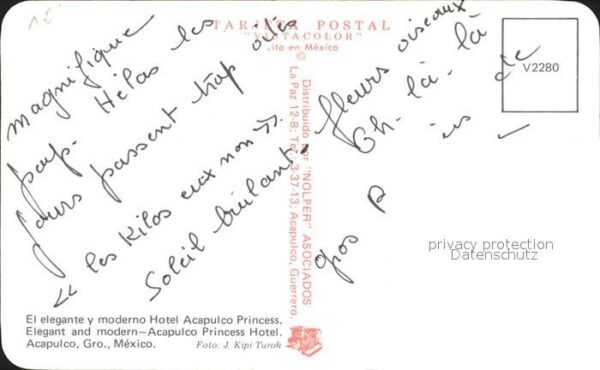 TARJETA POSTAL
"VISTACOLOR"
ito en México
©
V2280
magnifique
pays. Hélas les
jours passent trop vites
« les Kilos eux non ».
Soleil brûlant.
fleurs oiseaux
Oh-là-là
de
gros
Distribuido por "NOLPER" ASOCIADOS
La Paz 12-8; Tel: 3-37-13; Acapulco, Guerrero.
privacy protection
Datenschutz
El elegante y moderno Hotel Acapulco Princess.
Elegant and modern—Acapulco Princess Hotel.
Acapulco, Gro., México. Foto: J. Kipi Turok